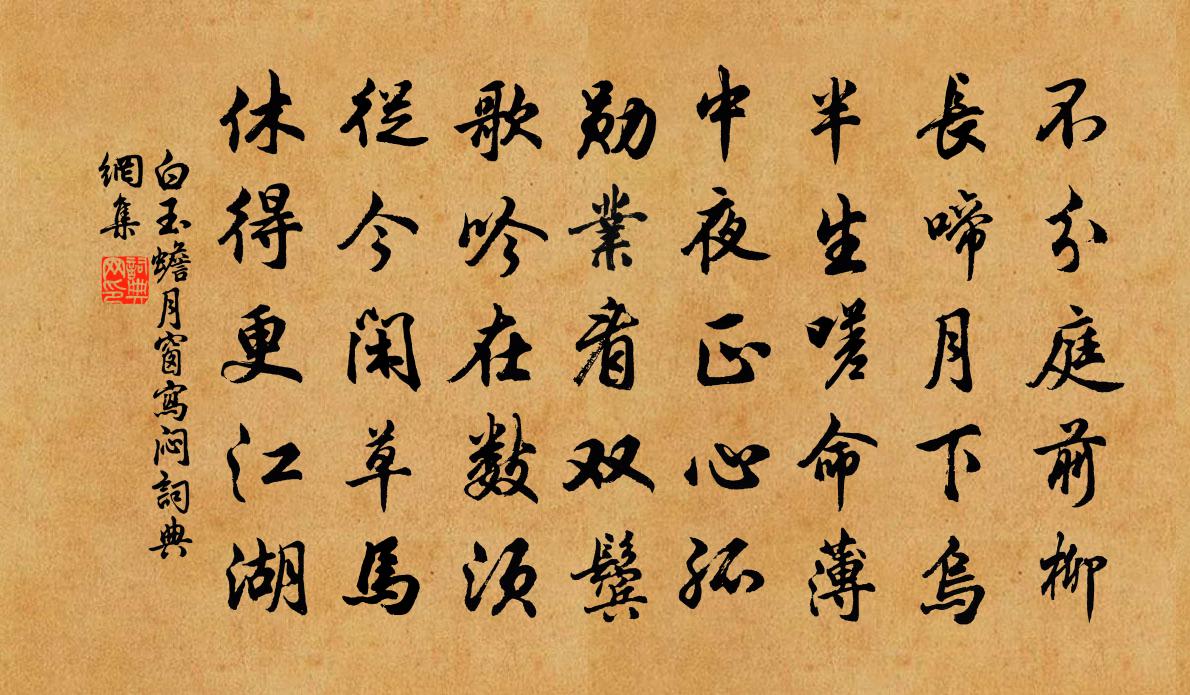 不分庭前柳
長啼月下烏
半生嗟命薄
中夜正心孤
勛業看双鬢
歌吟在数須
従今閑草馬
休得更江湖
白玉蟾月窗寫悶詞典
網集
詞典
网印